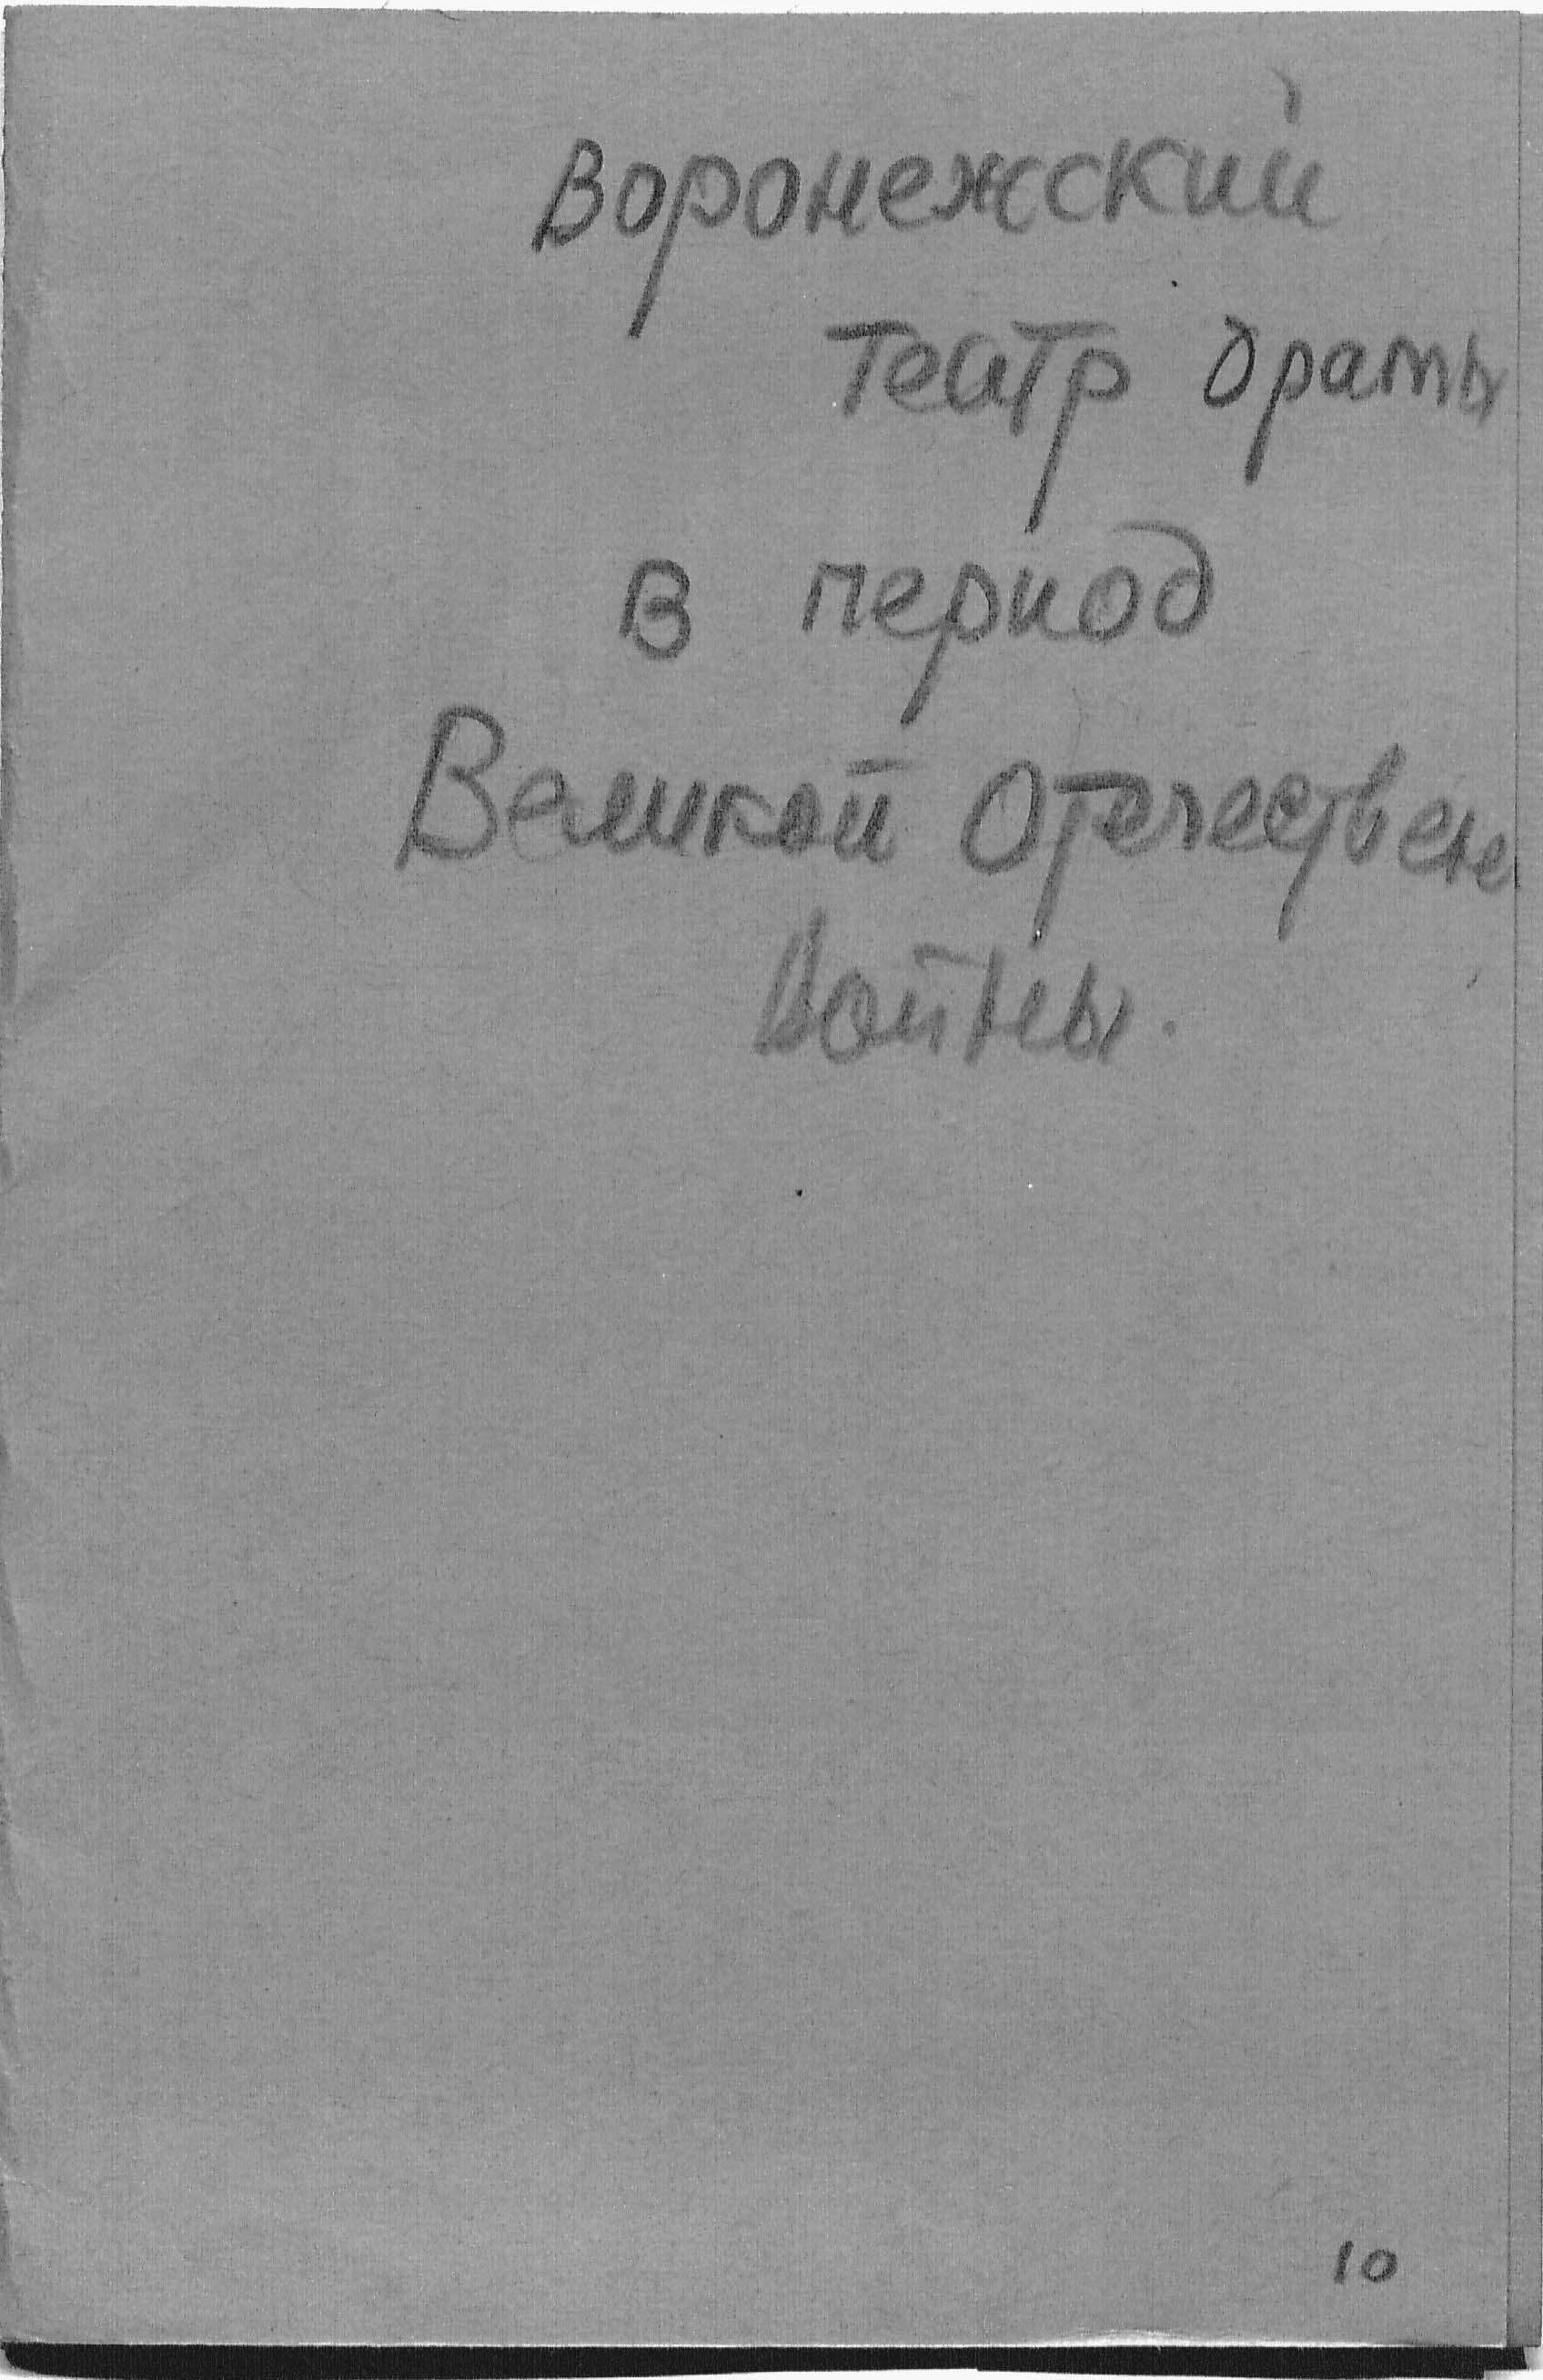 Воронежский
театр драмы
в период
Великой Отечествен
Войны.
10